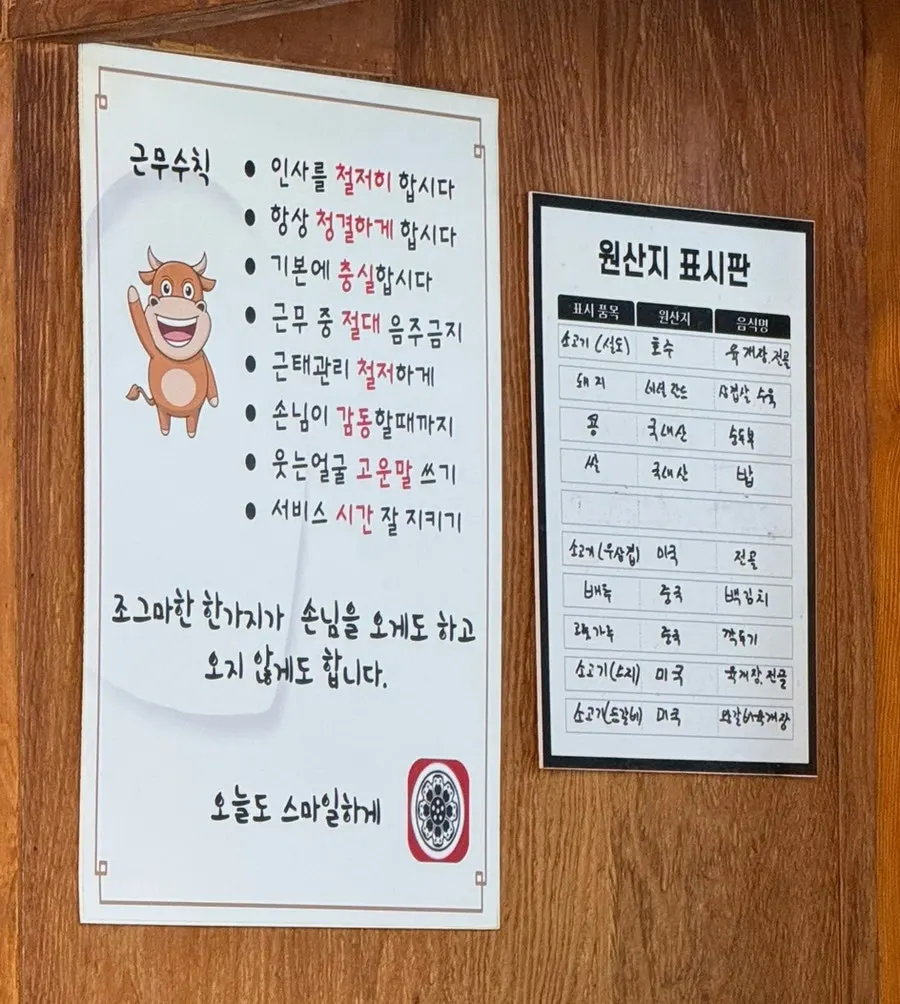 근무수칙
인사를 철저히 합시다
항상 청결하게 합시다
기본에 충실합시다
근무 중 절대 음주금지
근태관리 철저하게
손님이 감동할때까지
웃는얼굴 고운말 쓰기
서비스 시간 잘 지키기
조그마한 한가지가 손님을 오게도 하고
오지 않게도 합니다.
오늘도 스마일하게
원산지 표시판
표시 품목 원산지 음식명
소고기 (설도) 호수 육개장.전골
돼지 삼겹살 수육
콩 국내산 순두부
쌀 국내산 밥
소고기(우삼겹) 미국 전골
배추 중국 백김치
중국 깍두기
소고기(스지) 미국 육개장.전골
소고기(등갈비) 미국